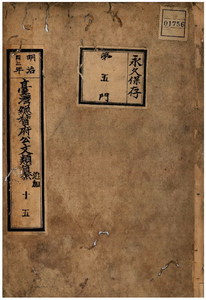 01756
永久保存
第五門
明治
臺灣總督府公文類纂
追加
十五